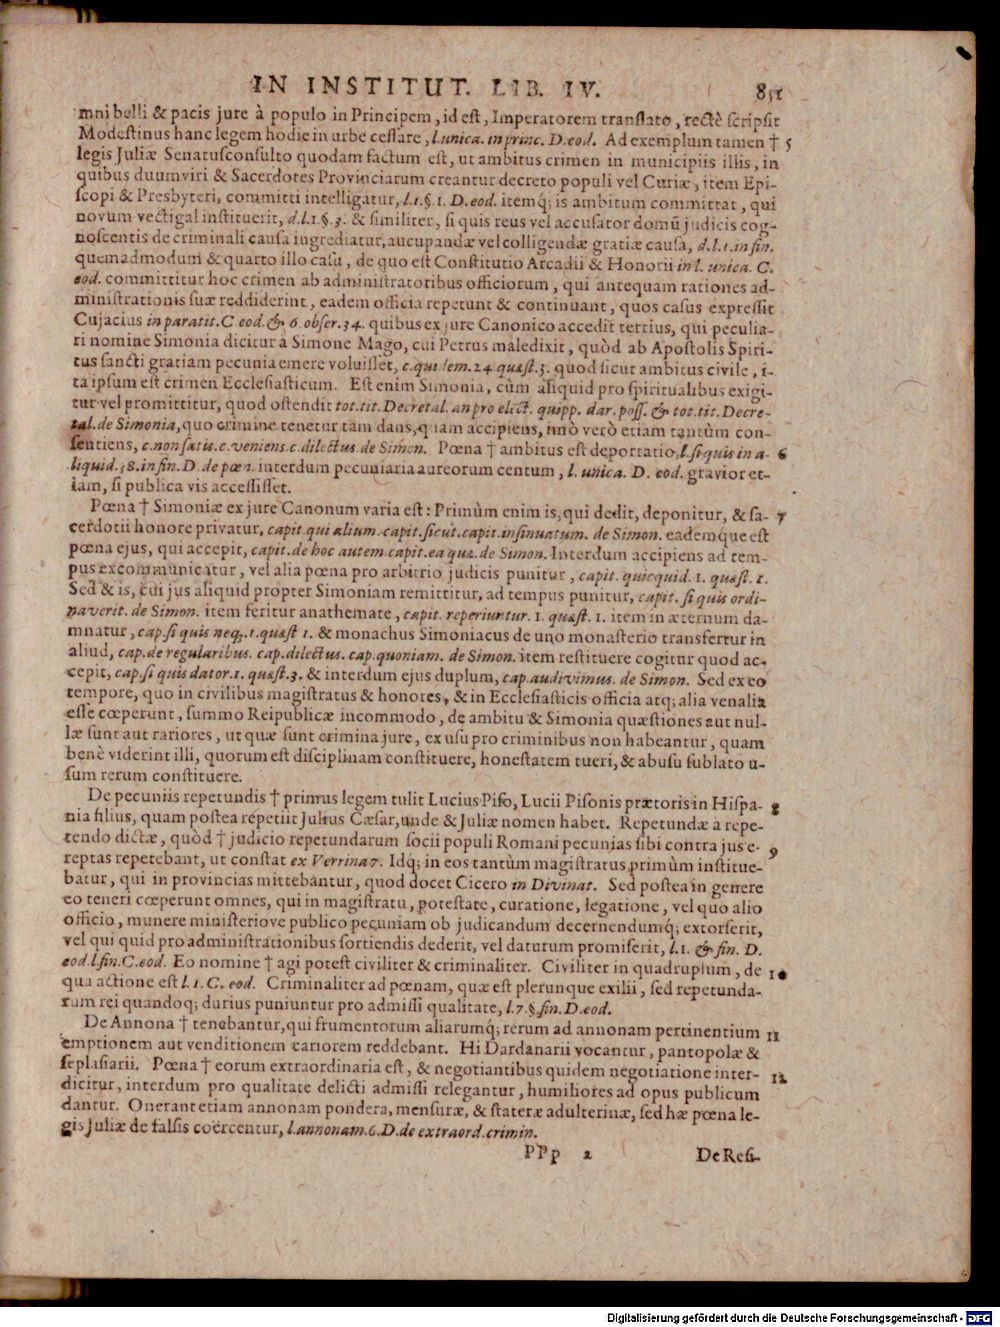 IN INSTITUT. LIB. IV. 851
mni belli & pacis jure à populo in Principem, id est, Imperatorem translato, rectè scripsit
Modestinus hanc legem hodie in urbe cessare, l.unica. in princ. D. eod. Ad exemplum tamen † 5
legis Juliæ Senatusconsulto quodam factum est, ut ambitus crimen in municipiis illis, in
quibus duumviri & Sacerdotes Provinciarum creantur decreto populi vel Curiæ, item Epi-
scopi & Presbyteri, committi intelligatur, l.1.§.1. D. eod. itemq; is ambitum committat, qui
novum vectigal instituerit, d.l.1.§.3. & similiter, si quis reus vel accusator domũ judicis cog-
noscentis de criminali causa ingrediatur, aucupandæ vel colligendæ gratiæ causa, d.l.1.in fin.
quemadmodum & quarto illo casu, de quo est Constitutio Arcadii & Honorii in l. unica. C.
eod. committitur hoc crimen ab administratoribus officiorum, qui antequam rationes ad-
ministrationis suæ reddiderint, eadem officia repetunt & continuant, quos casus expressit
Cujacius in paratit. C. eod. & 6. obser. 34. quibus ex jure Canonico accedit tertius, qui peculia-
ri nomine Simonia dicitur à Simone Mago, cui Petrus maledixit, quòd ab Apostolis Spiri-
tus sancti gratiam pecunia emere voluisset, c. qui sem. 24 quæst. 3. quod sicut ambitus civile, i-
ta ipsum est crimen Ecclesiasticum. Est enim Simonia, cùm aliquid pro spiritualibus exigi-
tur vel promittitur, quod ostendit tot. tit. Decretal. an pro elect. quipp. dar. poss. & tot. tit. Decre-
tal. de Simonia, quo crimine tenetur tam dans, quam accipiens, imò verò etiam tantùm con-
sentiens, c. non satis. c. veniens. c. dilectus. de Simon. Pœna † ambitus est deportatio, l. si quis in a- 6
liquid. 38. in fin. D. de pœn. interdum pecuniaria aureorum centum, l. unica. D. eod. gravior et-
iam, si publica vis accessisset.
Pœna † Simoniæ ex jure Canonum varia est: Primùm enim is, qui dedit, deponitur, & sa- 7
cerdotii honore privatur, capit. qui alium. capit. sicut. capit. insinuatum. de Simon. eademque est
pœna ejus, qui accepit, capit. de hoc autem. capit. ea quæ. de Simon. Interdum accipiens ad tem-
pus excommunicatur, vel alia pœna pro arbitrio judicis punitur, capit. quicquid. 1. quæst. 1.
Sed & is, cui jus aliquid propter Simoniam remittitur, ad tempus punitur, capit. si quis ordi-
naverit. de Simon. item feritur anathemate, capit. reperiuntur. 1. quæst. 1. item in æternum da-
mnatur, cap. si quis neq;. 1. quæst 1. & monachus Simoniacus de uno monasterio transfertur in
aliud, cap. de regularibus. cap. dilectus. cap. quoniam. de Simon. item restituere cogitur quod ac-
cepit, cap. si quis dator. 1. quæst. 3. & interdum ejus duplum, cap. audivimus. de Simon. Sed ex eo
tempore, quo in civilibus magistratus & honores, & in Ecclesiasticis officia atq; alia venalia
esse cœperunt, summo Reipublicæ incommodo, de ambitu & Simonia quæstiones aut nul-
læ sunt aut rariores, ut quæ sunt crimina jure, ex usu pro criminibus non habeantur, quam
benè viderint illi, quorum est disciplinam constituere, honestatem tueri, & abusu sublato u-
sum rerum constituere.
De pecuniis repetundis † primus legem tulit Lucius Piso, Lucii Pisonis prætoris in Hispa- 8
nia filius, quam postea repetiit Julius Cæsar, unde & Juliæ nomen habet. Repetundæ a repe-
tendo dictæ, quòd † judicio repetundarum socii populi Romani pecunias sibi contra jus e- 9
reptas repetebant, ut constat ex Verrina 7. Idq; in eos tantùm magistratus primùm institue-
batur, qui in provincias mittebantur, quod docet Cicero in Divinat. Sed postea in genere
eo teneri cœperunt omnes, qui in magistratu, potestate, curatione, legatione, vel quo alio
officio, munere ministeriove publico pecuniam ob judicandum decernendumq; extorserit,
vel qui quid pro administrationibus sortiendis dederit, vel daturum promiserit, l.1. & fin. D.
eod. l. fin. C. eod. Eo nomine † agi potest civiliter & criminaliter. Civiliter in quadruplum, de 10
qua actione est l. 1. C. eod. Criminaliter ad pœnam, quæ est plerunque exilii, sed repetunda-
rum rei quandoq; durius puniuntur pro admissi qualitate, l. 7. §. fin. D. eod.
De Annona † tenebantur, qui frumentorum aliarumq; rerum ad annonam pertinentium 11
emptionem aut venditionem cariorem reddebant. Hi Dardanarii vocantur, pantopolæ &
seplasiarii. Pœna † eorum extraordinaria est, & negotiantibus quidem negotiatione inter- 12
dicitur, interdum pro qualitate delicti admissi relegantur, humiliores ad opus publicum
dantur. Onerant etiam annonam pondera, mensuræ, & stateræ adulterinæ, sed hæ pœna le-
gis Juliæ de falsis coërcentur, l. annonam. 6. D. de extraord. crimin.
PPp 2 De Resi-
Digitalisierung gefördert durch die Deutsche Forschungsgemeinschaft - DFG